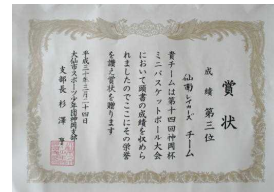 賞状
成績 第三位
仙南レイカーズ チーム
貴チームは第十四回神岡杯
ミニバスケットボール大会
において頭書の成績を収めら
れましたのでここにその栄誉
を讃え賞状を贈ります
平成三十年三月二十四日
大仙市スポーツ少年団神岡支部
支部長 杉澤 亨